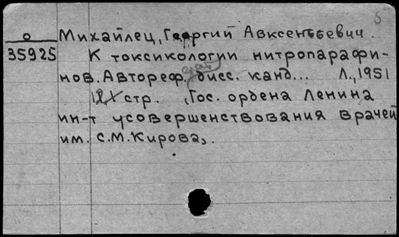 о
35925
Михайлец, Георгий Авксентьевич.
К токсикологии нитропарафи-
нов. Автореф. дисс. канд... Л., 1951
12 стр. (Гос. ордена Ленина
ин-т усовершенствования врачей
им. С.М. Кирова).